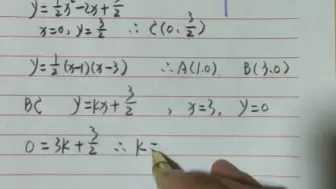 y=½x²-2x+3/2
x=0, y=3/2 ∴ C(0, 3/2)
y=½(x-1)(x-3) ∴ A(1.0) B(3.0)
BC y=kx+3/2 , x=3, y=0
0=3k+3/2 ∴ k=